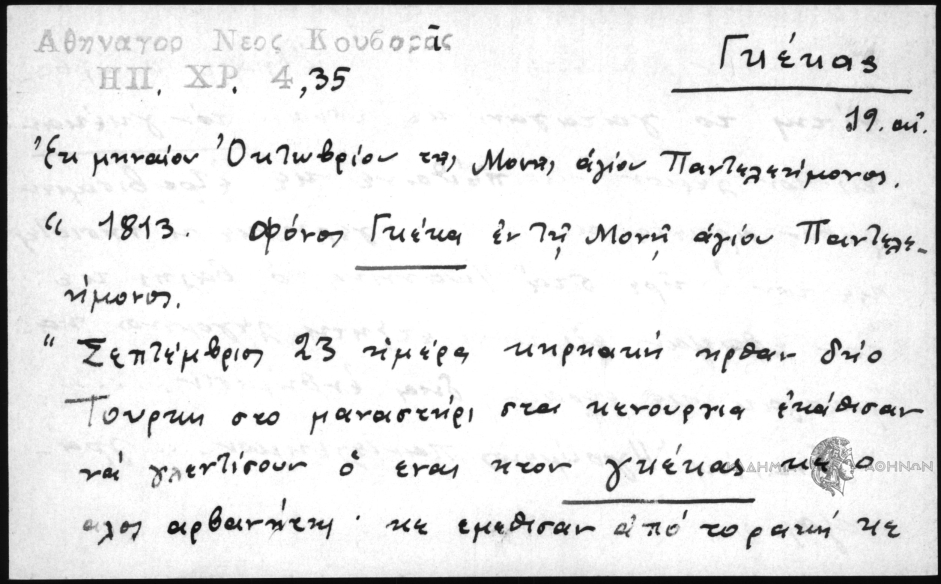 Αθηναγορ Νεος Κουβαρᾶς
ΗΠ. ΧΡ. 4,35
Γκέκας
19. αἰ.
Ἐκ μηναίου Ὀκτωβρίου τῆς Μονῆς ἁγίου Παντελεήμονος.
" 1813. Φόνος Γκέκα ἐν τῇ Μονῇ ἁγίου Παντελε-
ήμονος.
" Σεπτέμβριος 23 ἡμέρα κηρηακή ηρθαν δηο
Τουρκη στο μαναστηρι στα κενουργια ἐκάθισαν
νά γλεντίσουν ὁ ενας ητον γκέκας κε ο
αλος αρβανητης. κε εμεθισαν ἀπό το ρακή κε
ΑΚΑΔΗΜΙΑ ΑΘΗΝΩΝ